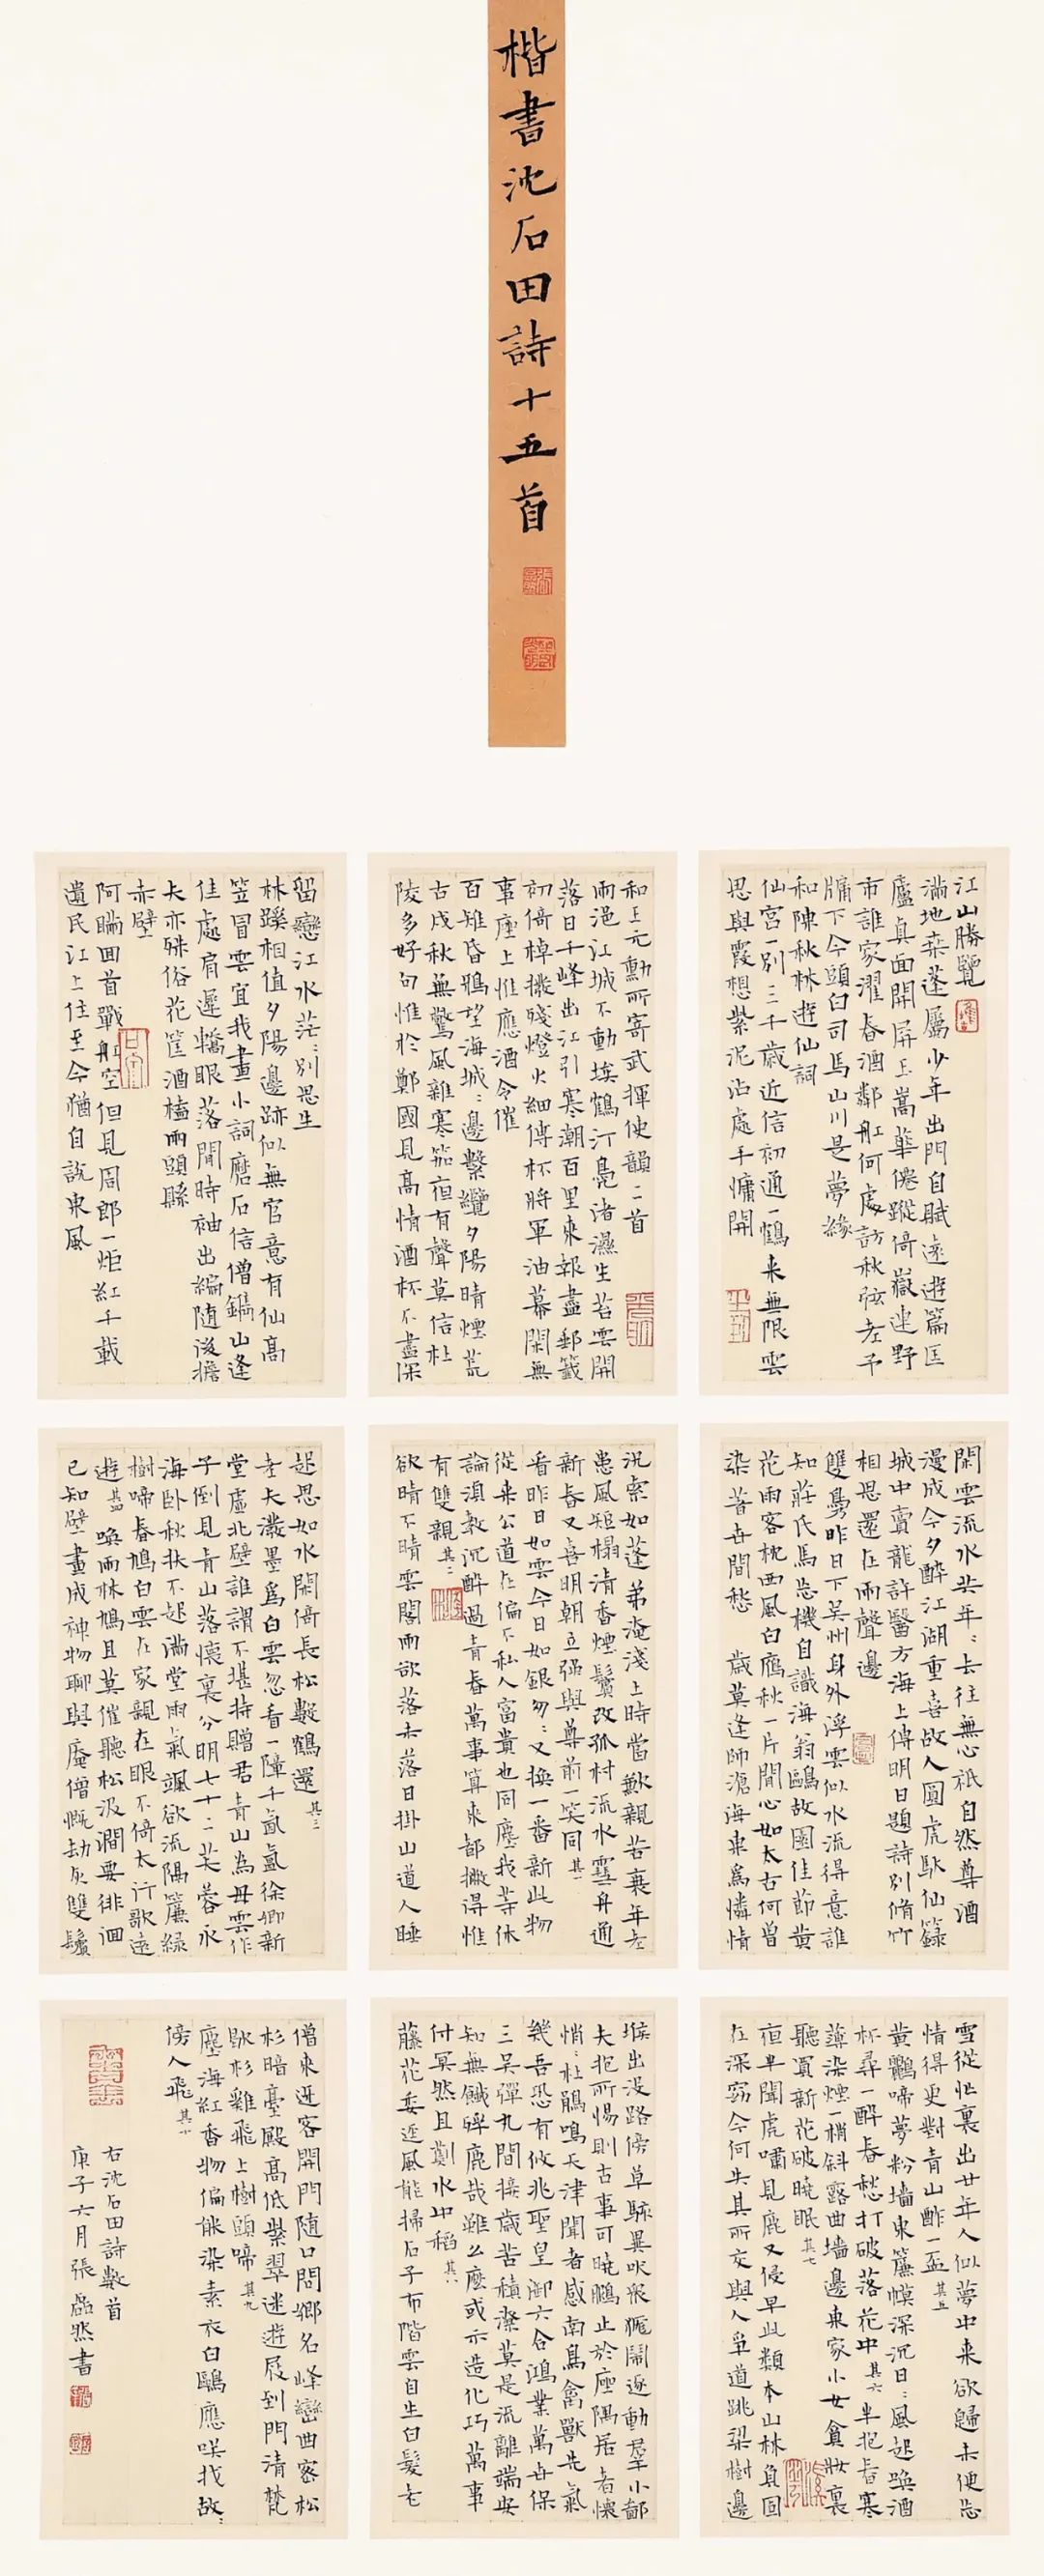 楷書沈石田詩十五首
江山勝覽
滿地桒蓬屬少年出門自賦遠遊篇匡
廬真面開屏上嵩華僊蹤倚嶽邊野
市誰家濯春酒鄰舡何處訪秋弦老予
牖下今頭白司馬山川是夢緣
和陳秋林遊仙詞
仙宮一別三千歲近信初通一鶴来無限雲
思與霞想紫泥沾處手慵開
和王元勳所寄武揮使韻二首
雨浥江城不動埃鶴汀鳧渚濕生苔雲開
落日千峰出江引寒潮百里來報盡郵籤
初倚棹撥殘燈火細傳杯將軍油幕閑無
事座上惟應酒令催
百雉昏鴉望海城城邊繫纜夕陽晴煙荒
古戍秋無驚風雜寒笳夜有聲莫信杜
陵多好句惟於鄭國見高情酒杯不盡深
留戀江水茫茫別思生
林蹊相值夕陽邊跡似無官意有仙高
笠冒雲宜我畫小詞磨石信僧鐫山逢
佳處肩遲轎眼落閒時袖出編随後擔
夫亦殊俗花筐酒榼兩頭縣
赤壁
阿瞞回首戰舡空但見周郎一炬紅千載
遺民江上住至今猶自說東風
閑雲流水共年年去往無心祇自然尊酒
漫成今夕醉江湖重喜故人圓虎馱仙籙
城中賣龍許醫方海上傳明日題詩別脩竹
相思還在雨聲邊
雙鳧昨日下吴州身外浮雲似水流得意誰
知莊氏馬忘機自識海翁鷗故園佳節黃
花雨客枕西風白鴈秋一片閒心如太古何曾
染著世間愁　歲莫逢師滄海東為憐情
況索如蓬弟淹淺上時當歉親苦衰年老
患風短榻清香煙鬢改孤村流水雪舟通
新春又喜明朝立强與尊前一笑同其一
看昨日如雲今日如銀匆匆又換一番新此物
從来公道在偏不私人富貴也同塵我等休
論渖穀沉醉過青春萬事算來都撇得惟
有雙親其二
欲晴不晴雲閣雨欲落未落日掛山道人睡
起思如水閑倚長松數鶴還其三
老夫潑墨為白雲忽看一障千氤氳徐卿新
堂虛北壁誰謂不堪持贈君青山為母雲作
子倒見青山落懷裏分明七十二芙蓉永
海卧秋扶不起滿堂雨氣颯欲流隔簾綠
樹啼春鳩白雲在家親在眼不倚太行歌遠
遊其四　喚雨林鳩且莫催聽松汲澗要徘徊
已知壁畫成神物聊與庵僧慨劫灰雙鬢
雪從忙裏出廿年人似夢中来欲歸未便忘
情得更對青山酢一盃其五
黃鸝啼夢粉墻東簾幙深沉日日風起喚酒
杯尋一醉春愁打破落花中其六半抱春寒
薄染煙一梢斜露曲墻邊東家小女貪妝裏
聽買新花破曉眠其七
夜卑聞虎嘯見鹿又侵早此類本山林負固
在深窈今何失其所交與人争道跳梁樹邊
猴出没路傍草駭異吠衆犬鬧逐動羣小鄙
夫抱所惕則古事可曉鵩止於座隅居者懷
悄悄杜鵑鳴天津聞者感南鳥禽獸先氣
幾吾恐有攸兆聖皇御六合鴻業萬世保
三吴彈丸間接歲苦積潦莫是流離端安
知無饑殍鹿哉雖么麼或示造化巧萬事
付冥然且藝水中稻其八
藤花委逕風能掃石子布階雲自生白髮老
僧来迓客開門随口問鄉名峰巒曲密松
杉暗臺殿高低紫翠迷遊屐到門清梵
歇杉雞飛上樹頭啼其九
塵海紅香物偏能染素衣白鷗應咲我故故
傍人飛其十
右沈石田詩數首
庚子六月張磊然書